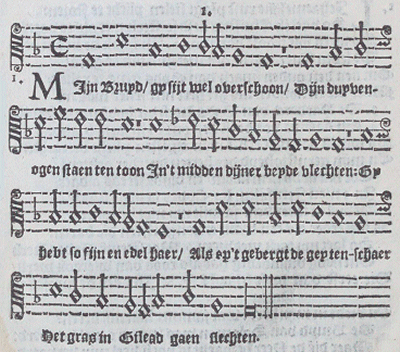 1.
1.
MIjn Bruyd/ gy sijt wel overschoon/ Dijn duyven-
ogen staen ten toon In't midden dijner beyde vlechten: Gy
hebt so fijn en edel haer/ Als op't gebergt de geyten-schaer
Het gras in Gilead gaen slechten.